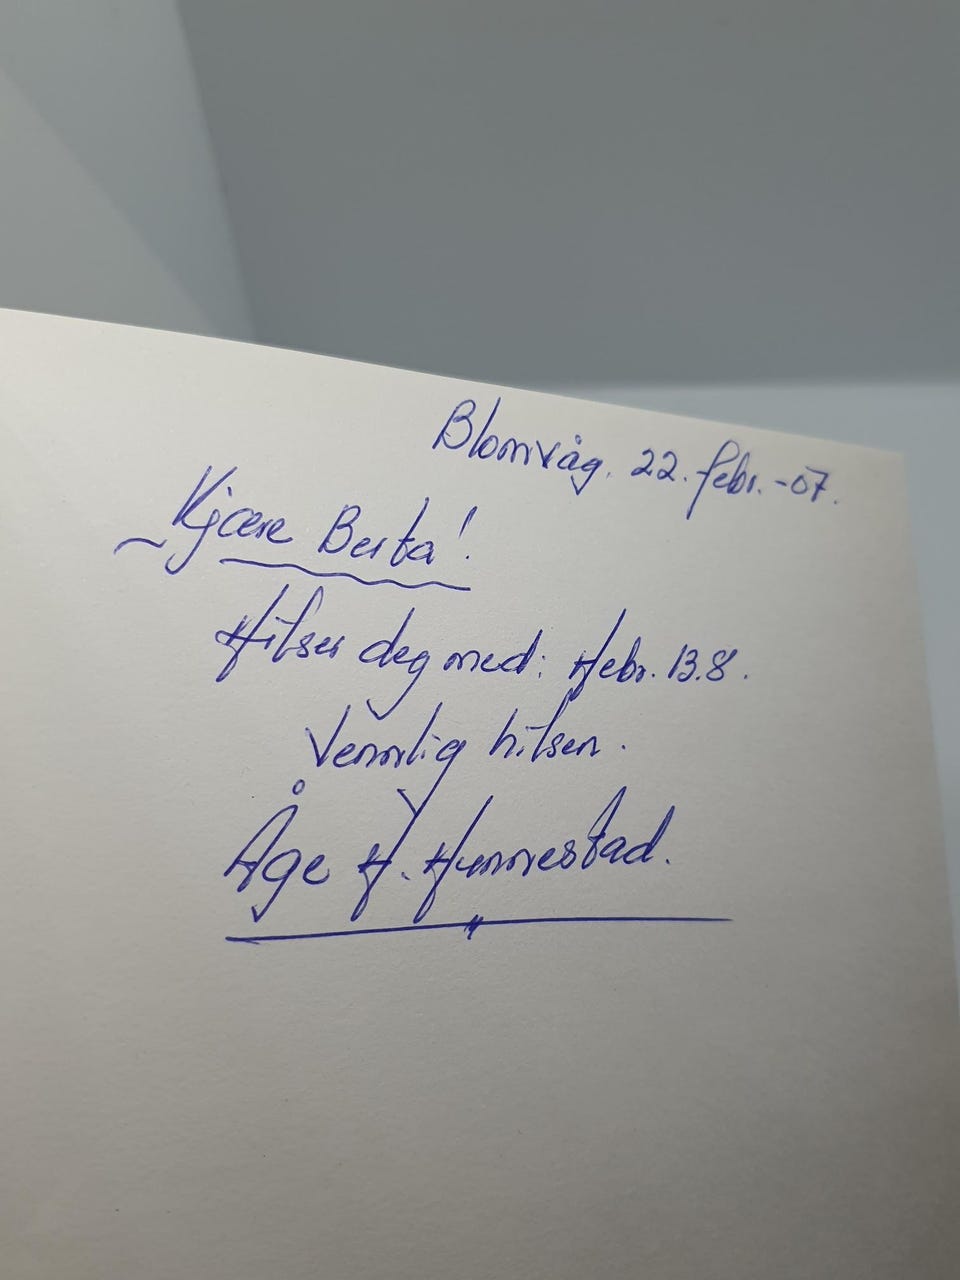 Blomvåg. 22. febr. -07.
Kjære Berta!
Hilser deg med: Hebr. 13.8.
Vennlig hilsen.
Åge H. Hunnestad.